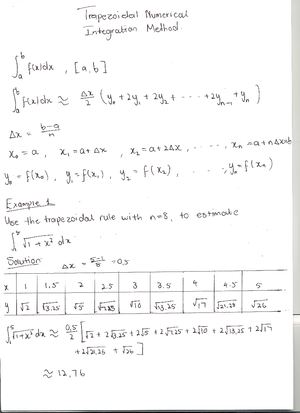 Trapezoidal Numerical
Integration Method
∫_a^b f(x)dx , [a, b]
∫_a^b f(x)dx ≈ Δx/2 (y₀ + 2y₁ + 2y₂ + ······ + 2y_{n-1} + y_n)
Δx = b-a/n
x₀ = a , x₁ = a + Δx , x₂ = a + 2Δx , ······ x_n = a + nΔx = b
y₀ = f(x₀) , y₁ = f(x₁) , y₂ = f(x₂) , ······ ; y_n = f(x_n)
Example 1
Use the trapezoidal rule with n=8, to estimate
∫_1^5 √1+x² dx
Solution Δx = 5-1/8 = 0,5
x 1 1,5 2 2.5 3 3.5 4 4.5 5
y √2 √3.25 √5 √7.25 √10 √13,25 √17 √21.25 √26
∫_1^5 √1+x² dx ≈ 0,5/2 [√2 + 2√3.25 + 2√5 + 2√7.25 + 2√10 + 2√13,25 + 2√17
+ 2√21,25 + √26]
≈ 12,76